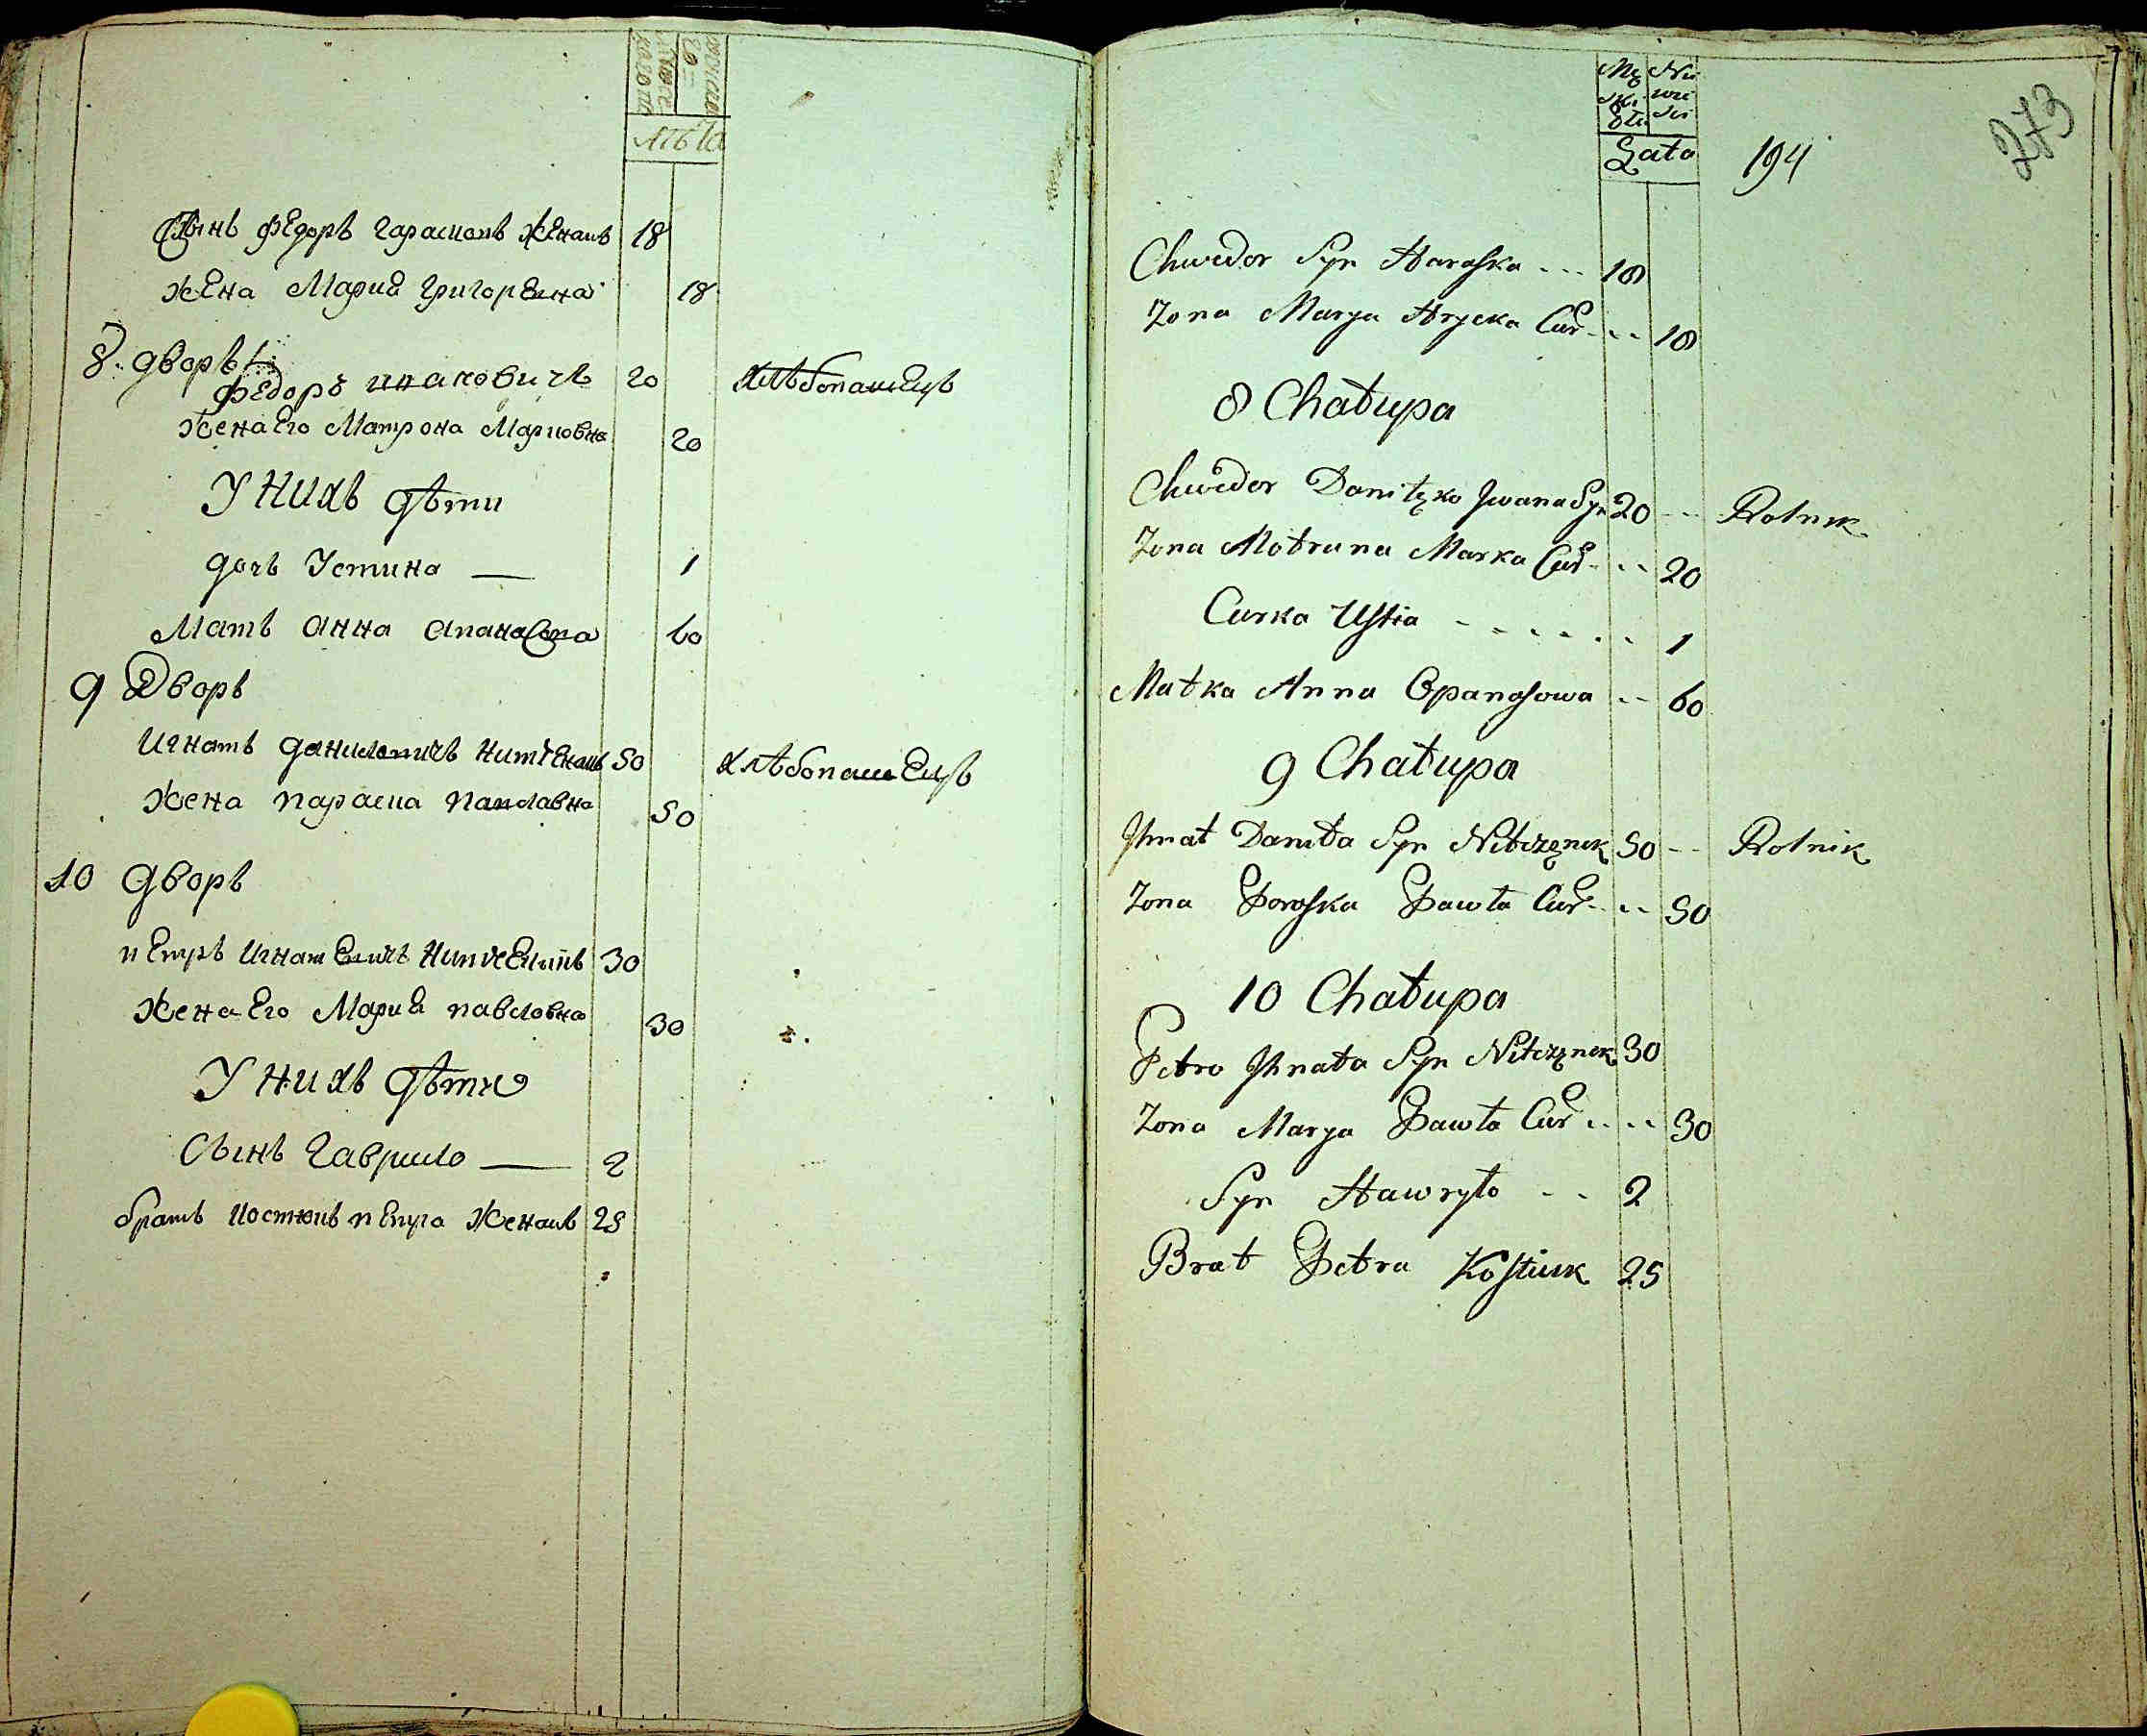 мужеска
женска
лѣта
Сынъ Федоръ Гараськовъ женатъ 18
Жена Мария Григорьевна 18
8. дворъ
Федоръ Ивановичъ 20 хлѣбопашецъ
Жена его Матрона Марковна 20
У нихъ дѣти
дочь Устина — 1
Мать Анна Апанасова 60
9 Дворъ
Игнатъ Даниловичъ Нитченкъ 50 хлѣбопашецъ
Жена Параска Павловна 50
10 дворъ
Петръ Игнатевичъ Нитченкъ 30
Жена его Мария Павловна 30
У нихъ дѣти
Сынъ Гаврило — 2
братъ Костюкъ Петра женатъ 25
Lata 194 273
Chwedor Syn Haraska --- 18
Zona Marya Hrycka Cur. -- 18
8 Chałupa
Chwedor Daniłzko Jwana Syn 20 -- Rolnik
Zona Motruna Marka Cur -- 20
Curka Ustia ------ 1
Matka Anna Opanasowa -- 60
9 Chałupa
Jhnat Daniła Syn Nitczęnek 50 -- Rolnik
Zona Poraska Pawła Cur -- 50
10 Chałupa
Petro Jhnata Syn Nitczęnek 30
Zona Marya Pawła Cur -- 30
Syn Hawryło -- 2
Brat Petra Kostiuk 25